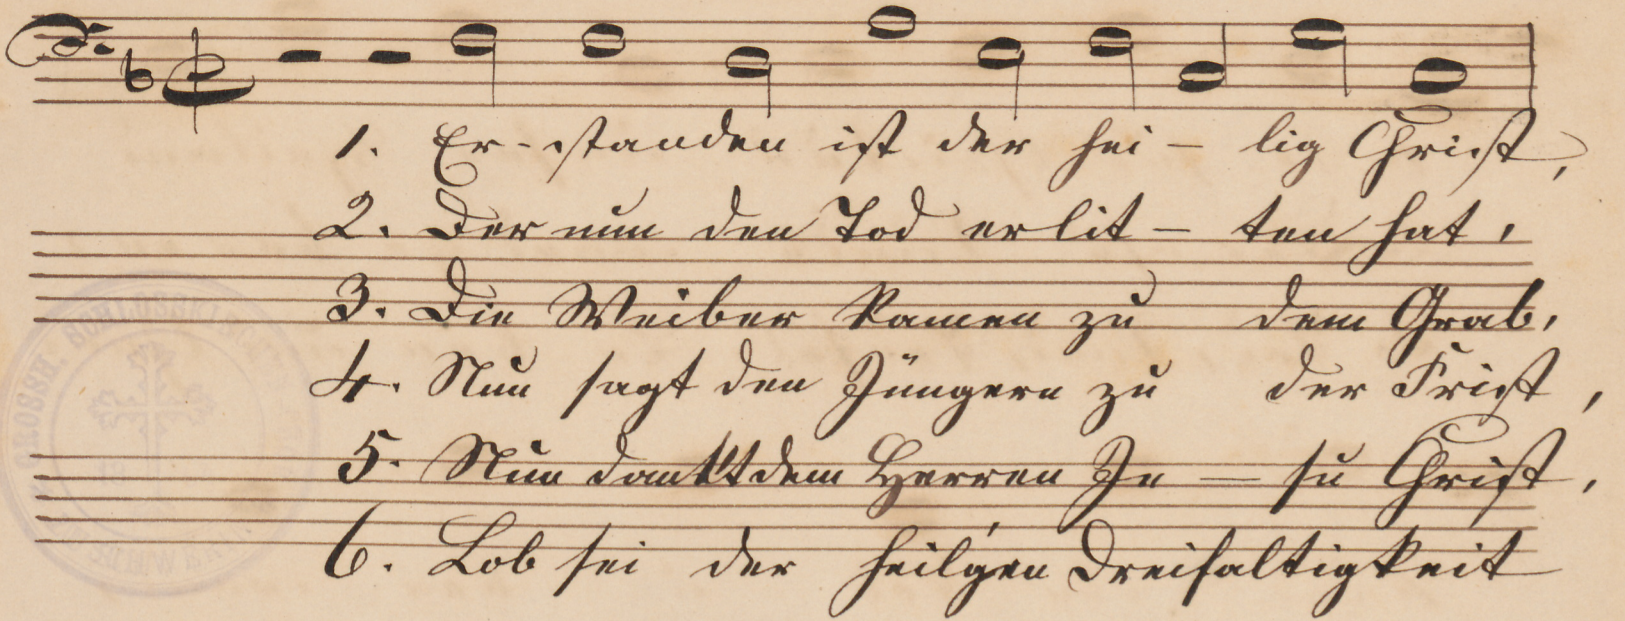 1. Er-standen ist der hei - lig Christ,
2. Der nun den Tod erlit - ten hat,
3. Die Weiber kamen zu dem Grab,
4. Nun sagt den Jüngern zu der Frist,
5. Nun dankt dem Herren Je - su Christ,
6. Lob sei der heil'gen Dreifaltigkeit
GROSSH. SCHLOSSKIRCHE